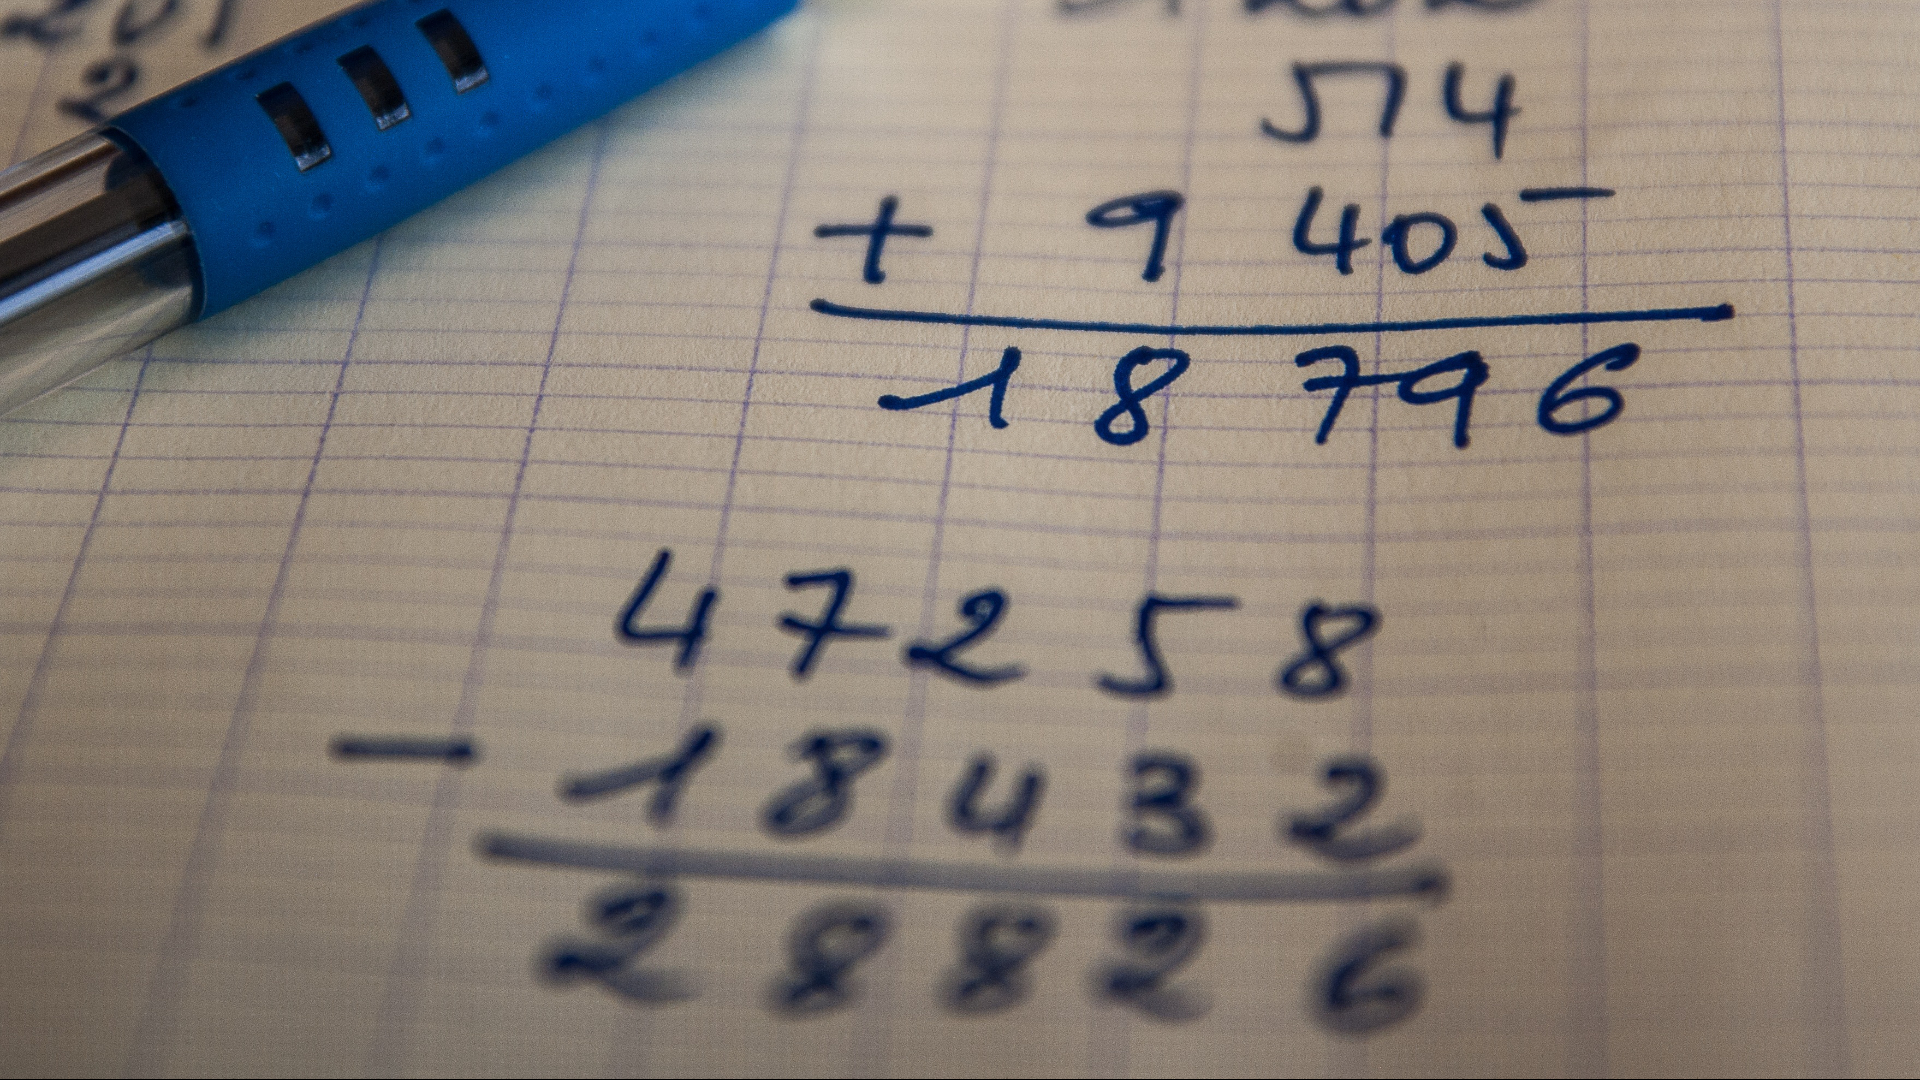 2
514
+ 9 405
18 796
47258
- 18432
28826